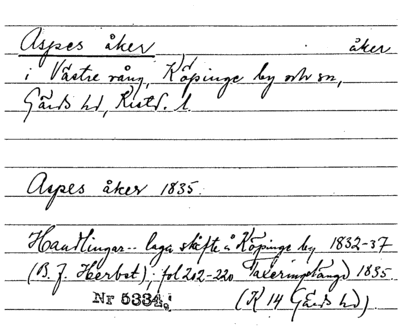 Aspes åker åker
i Västre vång, Köpinge by och sn,
Gärds hd, Kristd. l.
Aspes åker 1835.
Handlingar.. laga skifte å Köpinge by 1832-37
(B. J. Herbst); fol 202-220 Taxeringslängd 1835
Nr 5334. (K 14 Gärds hd).